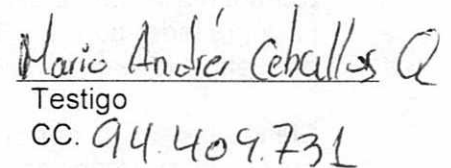 Mario Andrés Ceballos Q
Testigo
CC. 94.409.731